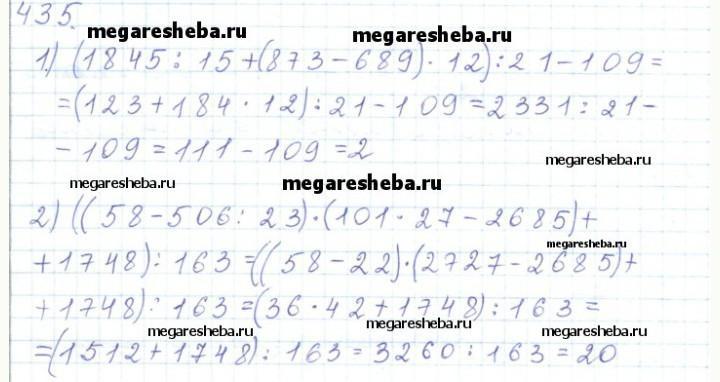 435.
megaresheba.ru
megaresheba.ru
1) (1845 : 15 + (873 - 689) · 12) : 21 - 109 =
= (123 + 184 · 12) : 21 - 109 = 2331 : 21 -
- 109 = 111 - 109 = 2
megaresheba.ru
megaresheba.ru
megaresheba.ru
2) ((58 - 506 : 23) · (101 · 27 - 2685) +
megaresheba.ru
+ 1748) : 163 = ((58 - 22) · (2727 - 2685) +
+ 1748) : 163 = (36 · 42 + 1748) : 163 =
megaresheba.ru
megaresheba.ru
= (1512 + 1748) : 163 = 3260 : 163 = 20